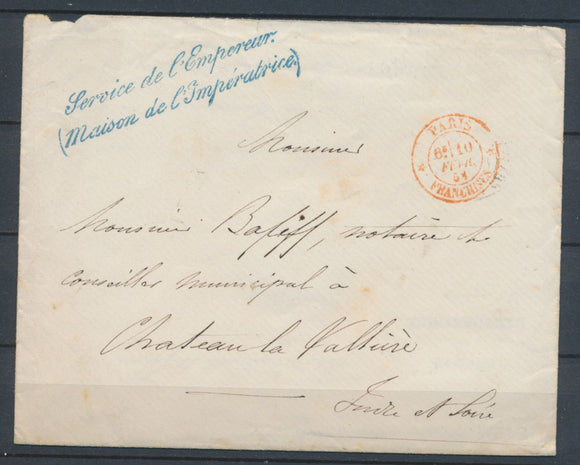 Service de l'Empereur.
(Maison de l'Impératrice.)
PARIS
10
FRANCHISES
Monsieur
Monsieur notaire et
conseiller municipal à
Chateau la Vallière
Indre et Loire